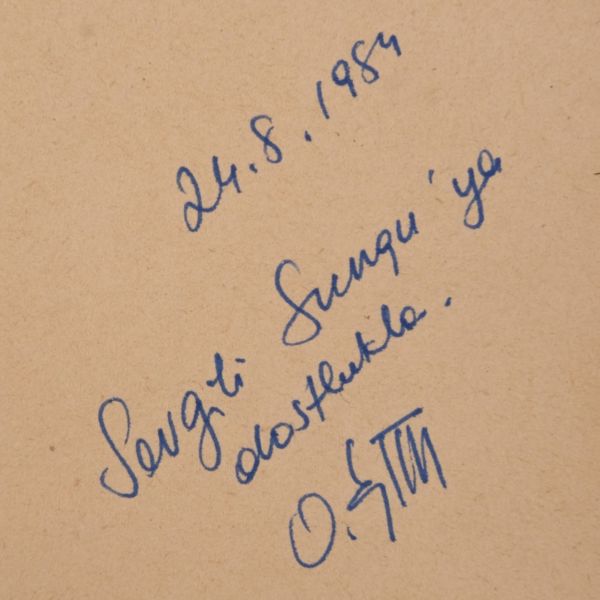 24.8.1984
Sevgili Sungu'ya
dostlukla.
O.